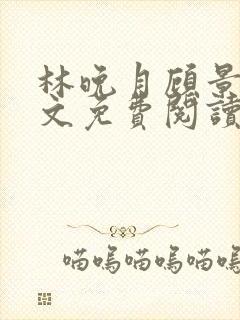 林晚月顾景
文免費閱讀
喵嗚喵嗚喵嗚